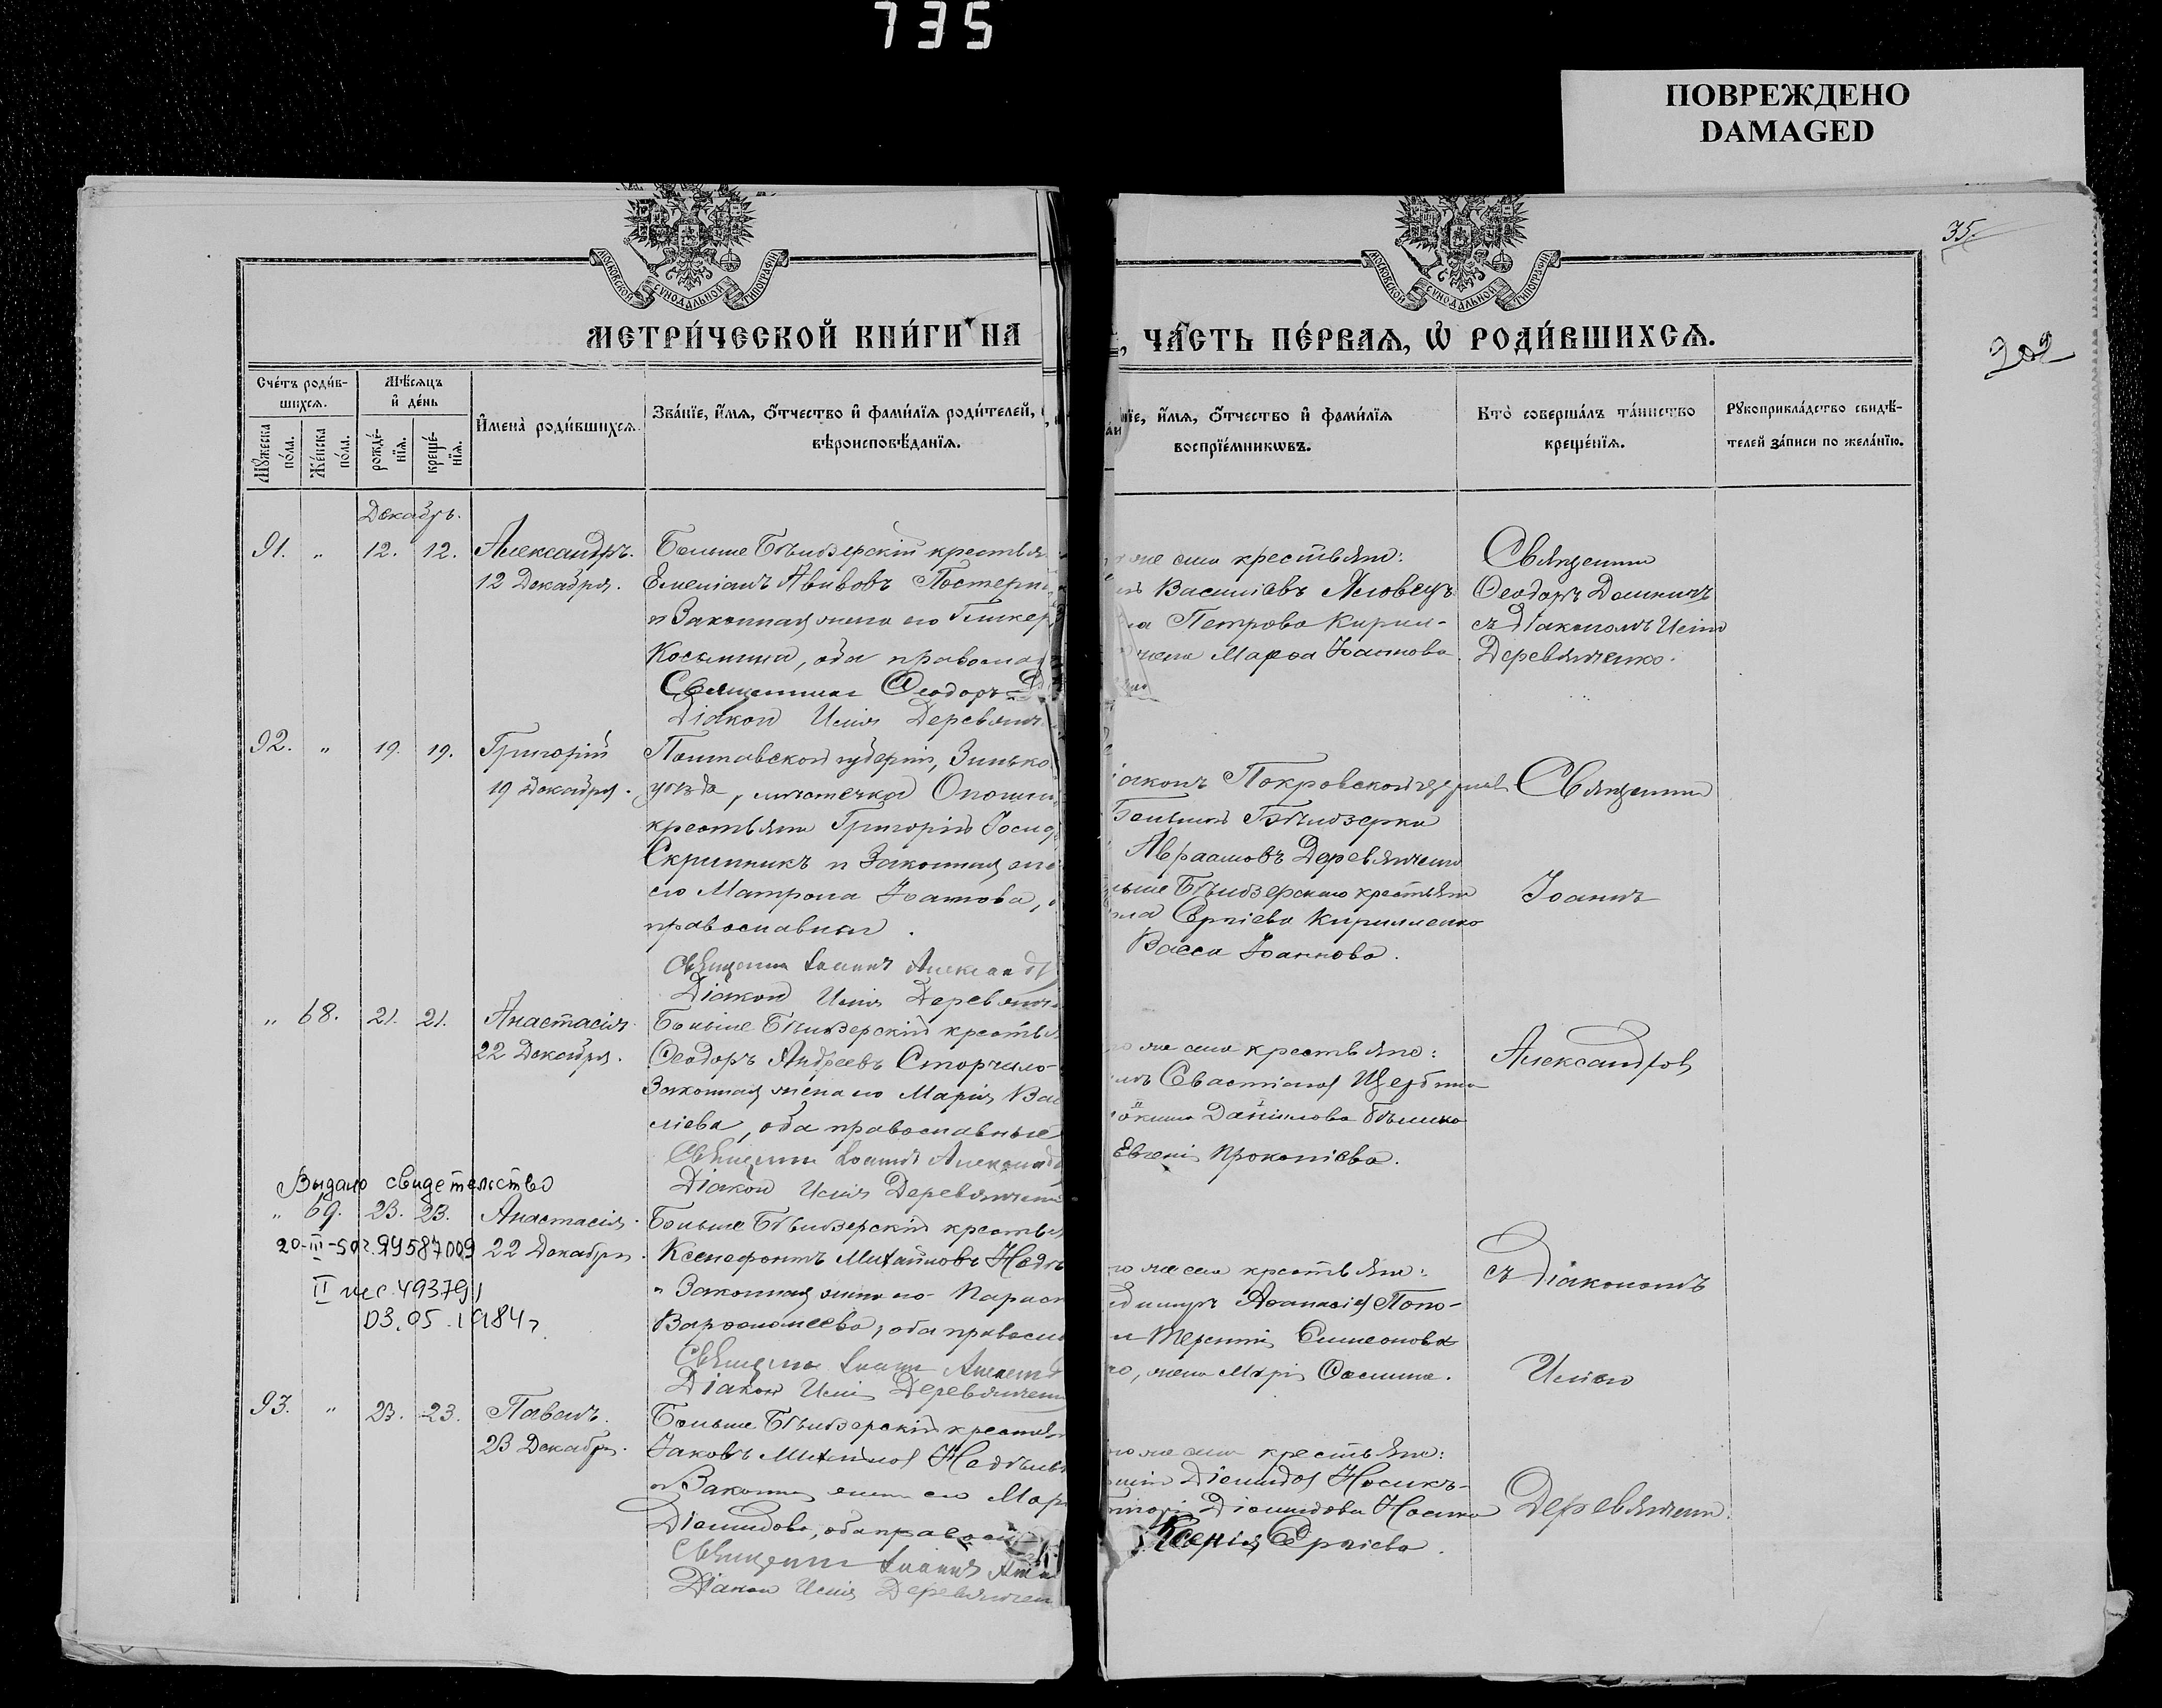 735
ПОВРЕЖДЕНО
DAMAGED
35.
202
МОСКОВСКОЙ СѴНОДАЛЬНОЙ ТИПОГРАФІИ
МОСКОВСКОЙ СѴНОДАЛЬНОЙ ТИПОГРАФІИ
МЕТРИ́ЧЕСКОЙ КНИ́ГИ НА
, ЧА́СТЬ ПЕ́РВАѦ, Ѡ РОДИ́ВШИХСѦ.
Сче́тъ роди́в-
шихсѧ.
Мꙋ́жеска по́ла.
Же́нска по́ла.
Мѣ́сѧцъ
и҆ де́нь
рожде́-нїѧ.
креще́-нїѧ.
И҆мена̀ роди́вшихсѧ.
Зва́нїе, и҆́мѧ, ѻ҆́тчество и҆ фами́лїѧ роди́телей,
вѣроисповѣ́данїѧ.
нїе, и҆́мѧ, ѻ҆́тчество и҆ фами́лїѧ
воспрїе́мникѡвъ.
Кто̀ соверша́лъ та́инство
креще́нїѧ.
Рꙋкоприкла́дство свидѣ́-
телей за́писи по жела́нїю.
Декабрь.
91. " 12. 12. Александръ.
12 Декабря.
Больше Бѣлозерскій крестья
Емеліанъ Авивовъ
и Законная жена его Гликер
Косьмина, оба правосла
Священникъ Ѳеодоръ
Діаконъ Исаія Деревянч
же села крестьяне:
Василіевъ Яловецъ
Петрова Кирил-
жена Марѳа Іоаннова.
Священникъ
Ѳеодоръ
съ Діакономъ Исаіею
Деревянченко.
92. " 19. 19. Григорій
19 Декабря.
Полтавской губерніи, Зенько
уѣзда, мѣстечка Опошни
крестьянинъ Григорій
Скрынникъ и Законная же
его Матрона Іоаннова,
православные.
Священникъ Іоаннъ Александр
Діаконъ Исаія Деревянч
іаконъ Покровской церкви
Большой Бѣлозерки
Авраамовъ Деревянченко
льше Бѣлозерскаго крестьян
Сергіева Кириленко
Васса Іоаннова.
Священникъ
Іоаннъ
" 68. 21. 21. Анастасія.
22 Декабря.
Больше Бѣлозерскій крестья
Ѳеодоръ Андреевъ Сторчило-
Законная жена его Марія Васи
ліева, оба православные
Священникъ Іоаннъ Александр
Діаконъ Исаія Деревянчен
го же села крестьяне:
Севастіановъ Щербина
Даніилова
Евгенія Прокопіева.
Александровъ
Выдано свидетельство
" 69. 23. 23. Анастасія.
20-III-50г. ЯУ587009 22 Декабря.
II 493791
03.05.1984г
Больше Бѣлозерскій крестья
Ксенофонтъ Михайловъ
и Законная жена его Параск
Варѳоломеева, оба правосла
Священникъ Іоаннъ
Діаконъ Исаія Деревянчен
го же села крестьяне:
Аѳанасіевъ Попо-
и Терентія Симеонова
го, жена Марія Ѳомина.
съ Діакономъ
Исаіею
93. " 23. 23. Павелъ.
23 Декабря.
Больше Бѣлозерскій крестья
Іаковъ Михайловъ
и Законная жена его Мар
Діомидова, оба правосл
Священникъ Іоаннъ
Діаконъ Исаія Деревянчен
го же села крестьяне:
Діомидовъ Носикъ-
Діомидова Носика
Ксенія Сергіева.
Деревянченко.